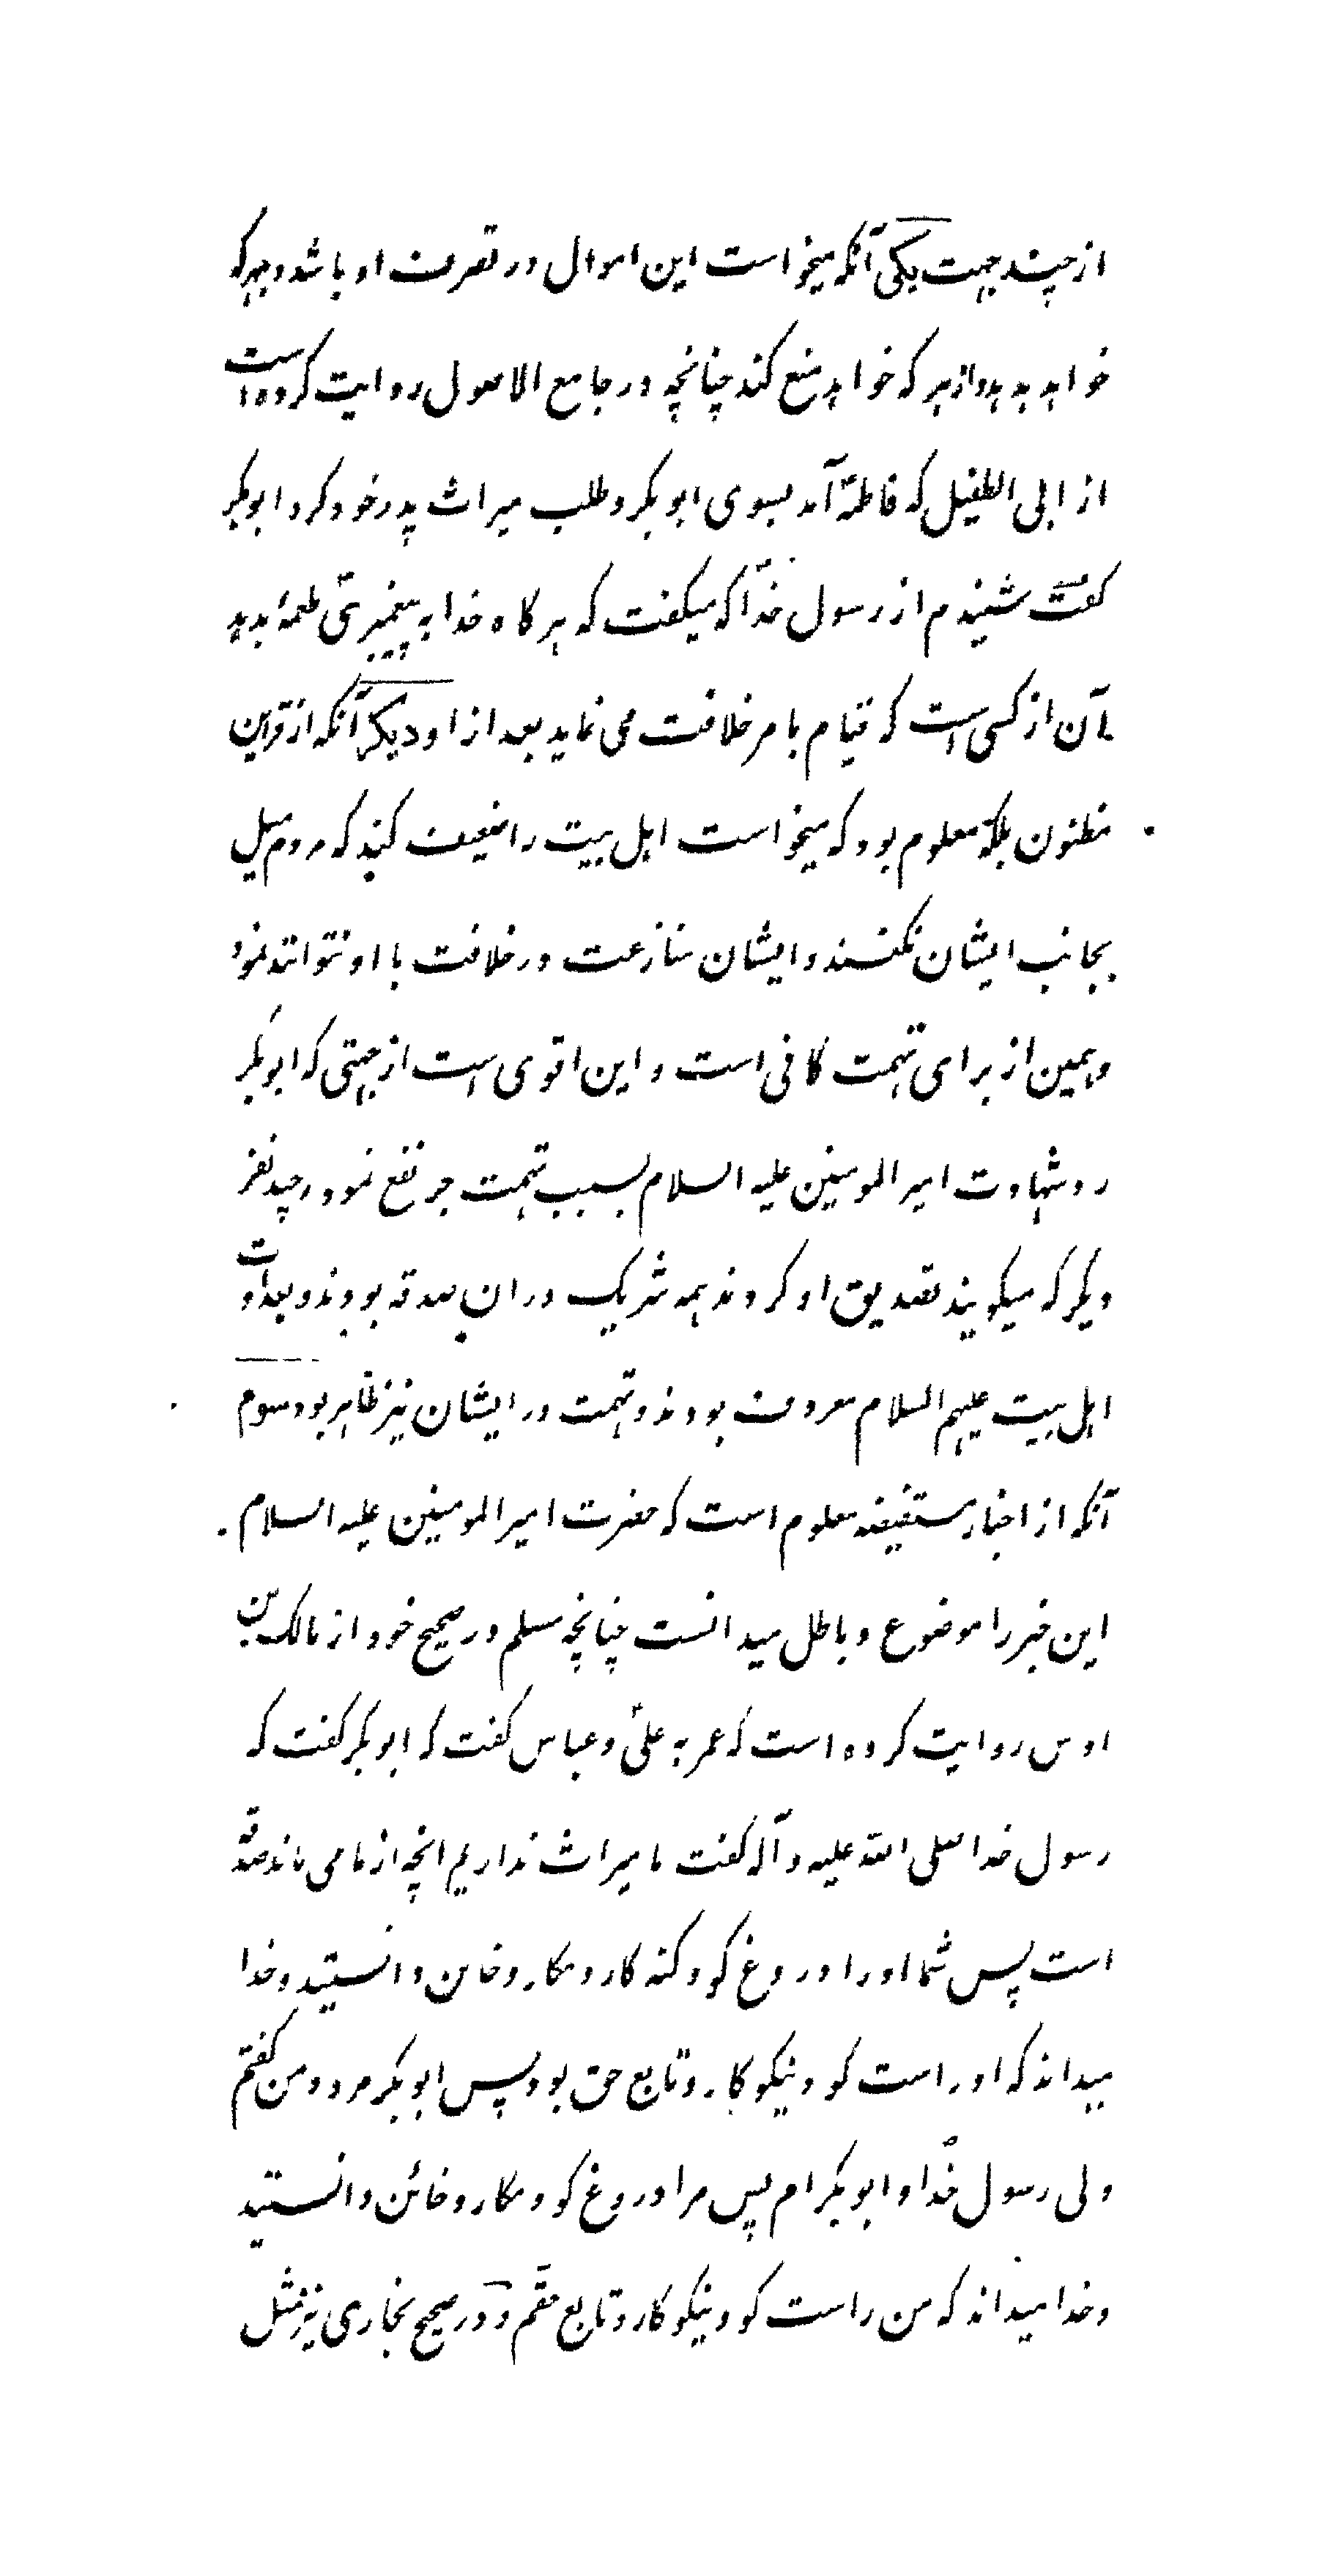 از چند جهت یکی آنکه میخواست این اموال در تصرف او باشد و بهر که
خواهد بدهد و از هر که خواهد منع کند چنانچه در جامع الاصول روایت کرده است
از ابی الطفیل که فاطمهؑ آمد بسوی ابوبکر و طلب میراث پدر خود کرد و ابوبکر
گفت شنیدم از رسول خداؐ که میگفت که هر گاه خدا به پیغمبری طعمهٔ بدهد
آن از کسی است که قیام بامر خلافت می نماید بعد از او دیگر آنکه از قراین
مظنون بلکه معلوم بود که میخواست اهل بیت را ضعیف کند که مردم میل
بجانب ایشان نکنند و ایشان منازعت در خلافت با او نتوانند نمود
و همین از برای تهمت کافی است و این اقوی است از جهتی که ابوبکر
رد شهادت امیر المومنین علیه السلام بسبب تهمت جر نفع نمود و چند نفر
دیگر که میگویند تصدیق او کردند همه شریک در ان صدقه بودند و بعداوت
اهل بیت علیهم السلام معروف بودند و تهمت در ایشان نیز ظاهر بود سوم
آنکه از اخبار مستفیضه معلوم است که حضرت امیر المومنین علیه السلام
این خبر را موضوع و باطل میدانست چنانچه مسلم در صحیح خود از مالک بن
اوس روایت کرده است که عمر به علیؑ و عباس گفت که ابوبکر گفت که
رسول خدا صلی الله علیه و آله گفت ما میراث نداریم انچه از ما می ماند صدقه
است پس شما او را دروغ گو و گنه کار و مکار و خاین دانستید و خدا
میداند که او راست گو و نیکو کار و تابع حق بود پس ابوبکر مرد و من گفتم
ولی رسول خداؐ و ابوبکر ام پس مرا دروغ گو و مکار و خائن دانستید
و خدا میداند که من راست گو و نیکو کار و تابع حقم و در صحیح بخاری نیز مثل